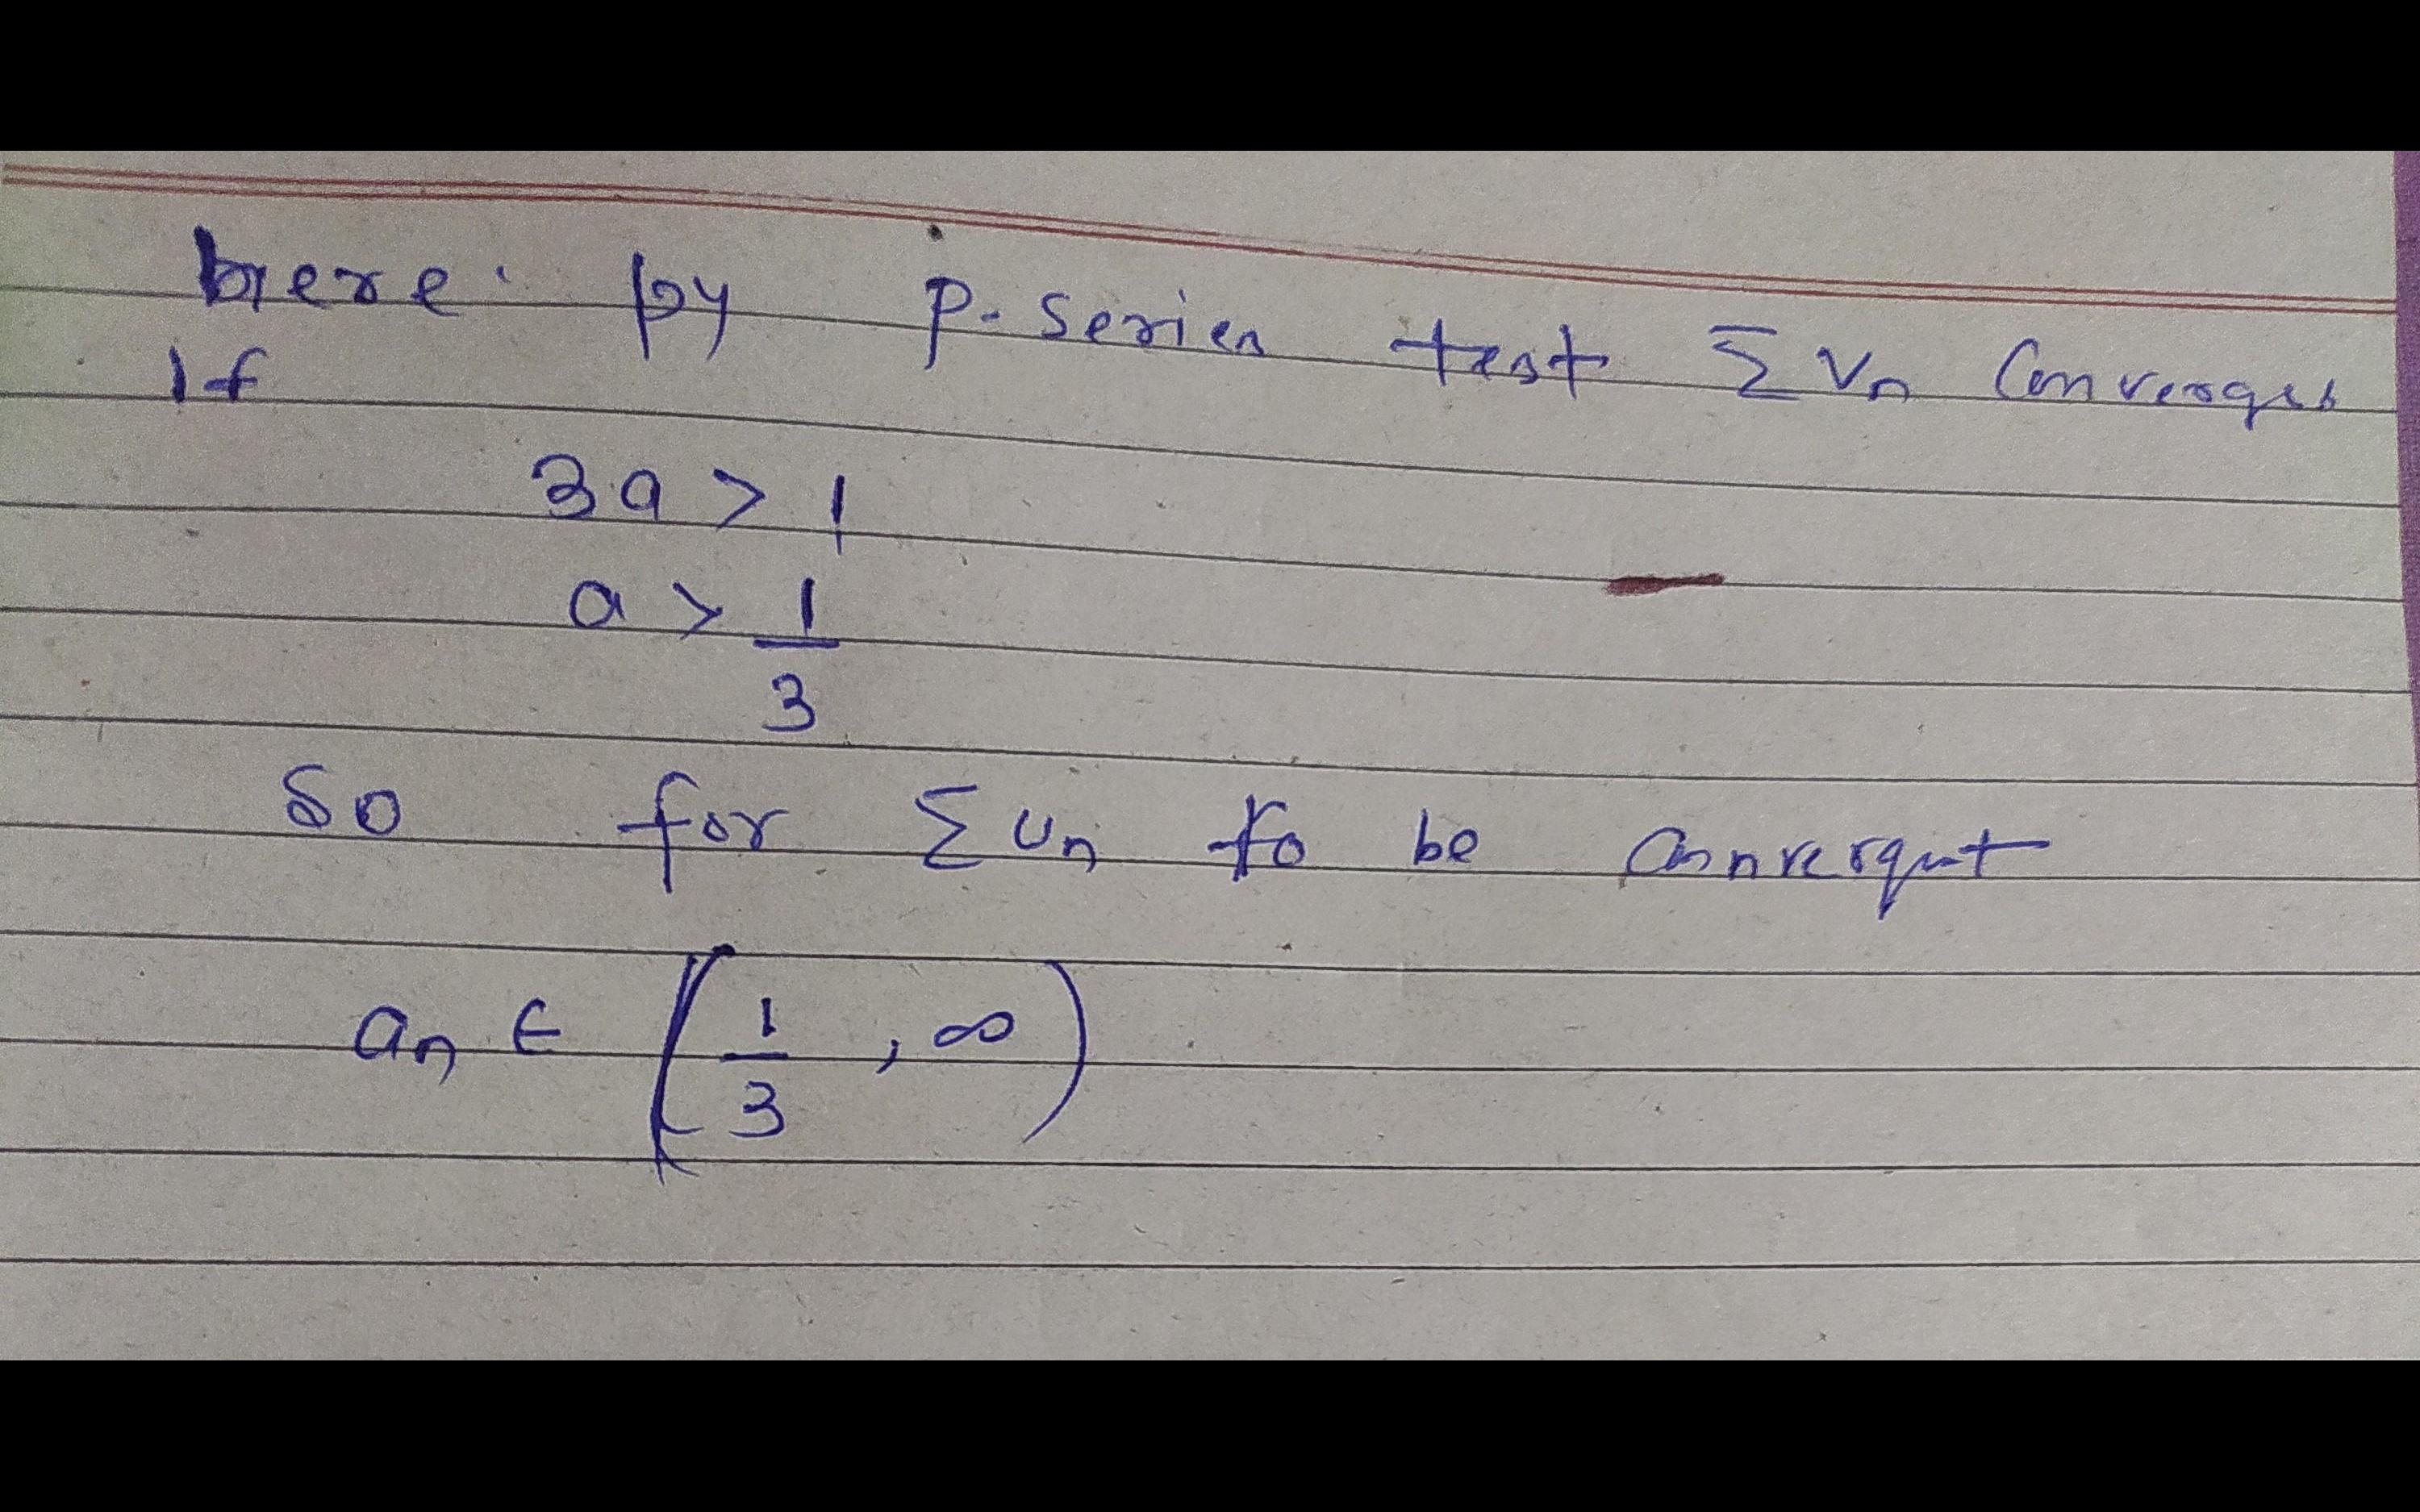 here by p-series test Σ vn Converges
If
3a > 1
a > 1/3
So for Σ un to be convergent
an ∈ (1/3, ∞)